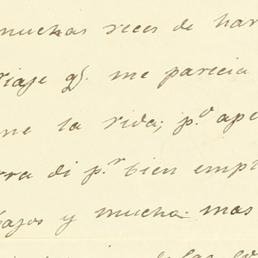 muchas veces de har
riaje qe. me parecia
me la vida; p.o ape
rra di p.r bien emp
bajos y mucha mas